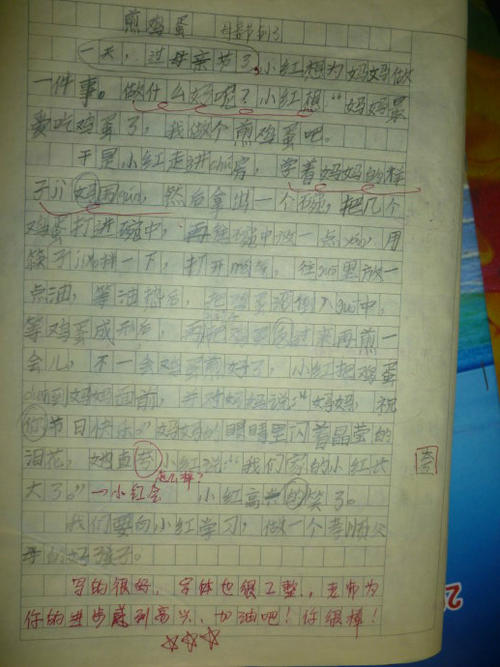 煎鸡蛋 母亲节到了
一天，过母亲节了，小红想为妈妈做
一件事。做什么好呢？小红想“妈妈最
爱吃鸡蛋了，我做个煎鸡蛋吧。
于是小红走进chú房，学着妈妈的样
子jì 然后拿出一个碗，把几个
鸡蛋打进碗中，再往碗中放一点 用
筷子 拌一下，打开 往 里放一
点油，等油热后，把鸡蛋 倒入 中，
等鸡蛋成形后，再把鸡蛋 过来再煎一
会儿，不一会鸡蛋煎好了，小红把鸡蛋
到妈妈面前，并对妈妈说：“妈妈，祝
你节日快乐”妈妈的眼睛里闪着晶莹的
泪花，她直夸小红说“我们家的小红长
怎么样？
大了。” 小红会 小红高兴的笑了。
我们要向小红学习，做一个孝顺父
母的好孩子。
写的很好，字体也很工整，老师为
你的进步感到高兴，加油吧！你很棒！